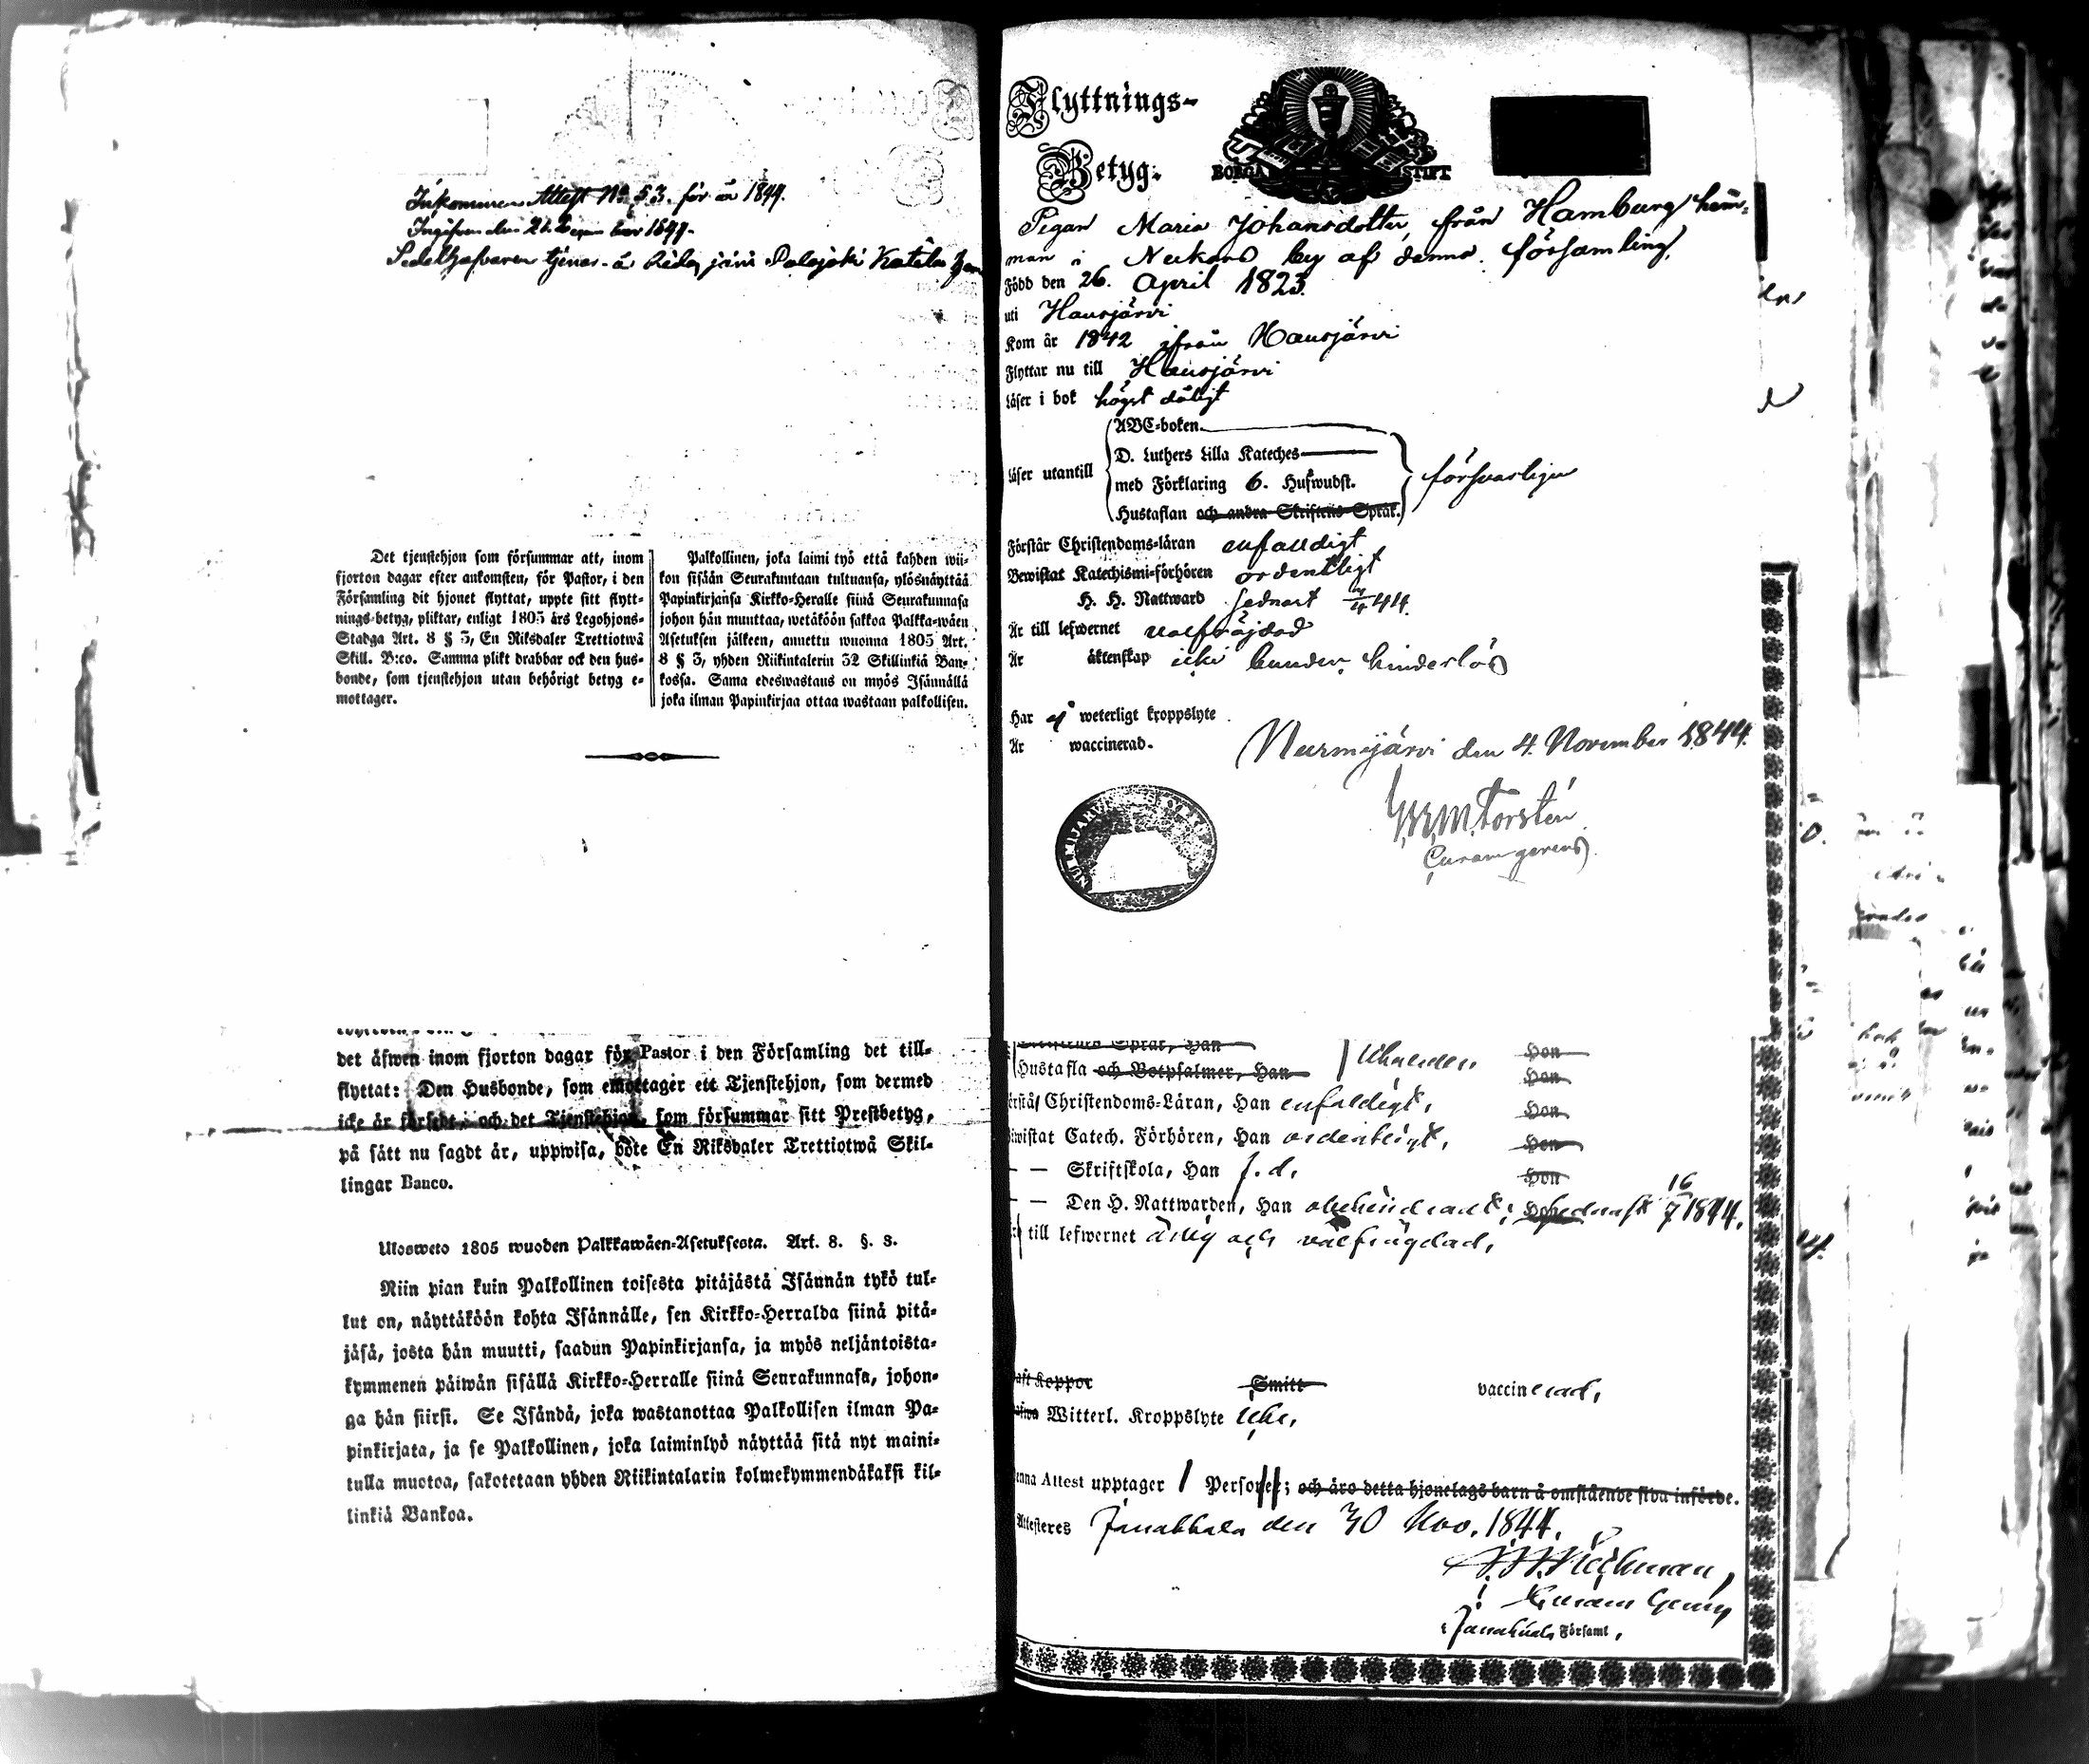 Inkommen Attest No 53. för år 1844.
Ingifven den 21. December 1844.
Sedelhafvaren tjenar å Ridasjärvi Palojoki Katila
Det tjenstehjon som försummar att, inom
fjorton dagar efter ankomsten, för Pastor, i den
Församling dit hjonet flyttat, uppte sitt flytt-
nings-betyg, pliktar, enligt 1805 års Legohjons-
Stadga Art. 8 § 3, En Riksdaler Trettiotwå
Skill. B:co. Samma plikt drabbar ock den hus-
bonde, som tjenstehjon utan behörigt betyg e-
mottager.
Palkollinen, joka laimi lyö että kahden wii-
kon sisään Seurakuntaan tultuansa, ylösnäyttää
Papinkirjansa Kirkko-Heralle siinä Seurakunnasa
johon hän muuttaa, wetäköön sakkoa Palkka-wäen
Asetuksen jälkeen, annettu wuonna 1805 Art.
8 § 3, yhden Riikintalerin 32 Skillinkiä Ban-
kossa. Sama edeswastaus on myös Isännällä
joka ilman Papinkirjaa ottaa wastaan palkollisen.
det äfwen inom fjorton dagar för Pastor i den Församling det till-
flyttat: Den Husbonde, som emottager ett Tjenstehjon, som dermed
icke är försedt, och det Tjenstehjon, som försummar sitt Prestbetyg,
på sätt nu sagdt är, uppwisa, böte En Riksdaler Trettiotwå Skil-
lingar Banco.
Ulosweto 1805 wuoden Palkkawäen-Asetuksesta. Art. 8. §. 3.
Niin pian kuin Palkollinen toisesta pitäjästä Isännän tykö tul-
lut on, näyttäköön kohta Isännälle, sen Kirkko-Herralda siinä pitä-
jäsä, josta hän muutti, saadun Papinkirjansa, ja myös neljäntoista-
kymmenen päiwän sisällä Kirkko-Herralle siinä Seurakunnasa, johon-
ga hän siirsi. Se Isändä, joka wastanottaa Palkollisen ilman Pa-
pinkirjata, ja se Palkollinen, joka laiminlyö näyttää sitä nyt maini-
tulla muotoa, sakotetaan yhden Riikintalarin kolmekymmendäkaksi kil-
linkiä Bankoa.
Flyttnings-
Betyg.
BORGÅ STIFT
Pigan Maria Johansdotter från Hamburg hem-
man i Nukars by af denna församling.
Född den 26. April 1823.
uti Hausjärvi
Kom år 1842 ifrån Hausjärvi
Flyttar nu till Hausjärvi
Läser i bok högst dåligt
Läser utantill
ABC-boken
D. Luthers Lilla Kateches
med Förklaring 6. Hufwudst.
Hustaflan och andra Skriftens Språk.
försvarligen
Förstår Christendoms-läran enfaldigt
Bewistat Katechismi-förhören ordentligt
H. H. Nattward sednast 44.
Är till lefwernet välfräjdad
Är äktenskap icke bunden, hinderslös
Har ej weterligt kroppslyte
Är waccinerad.
Nurmijärvi den 4. November 1844.
Torstén
Curam gerens
Skriftenes Språk, Han
Hustafla och Botpsalmer, Han
Hon
Hon
Förstår Christendoms-Läran, Han enfaldigt, Hon
Bewistat Catech. Förhören, Han ordentligt, Hon
— — Skriftskola, Han s. d. Hon
— — Den H. Nattwarden, Han obehindradt; Hon sednast 16/7 1844.
till lefwernet ärlig och välfrägdad,
haft Koppor Smitt vaccinerad,
Witterl. Kroppslyte icke,
Denna Attest upptager 1 Person; och äro detta hjonelags barn å omstående sida införde.
Attesteres Janakkala den 30 Nov. 1844.
Curam Gerens
i Janakkala Församl.